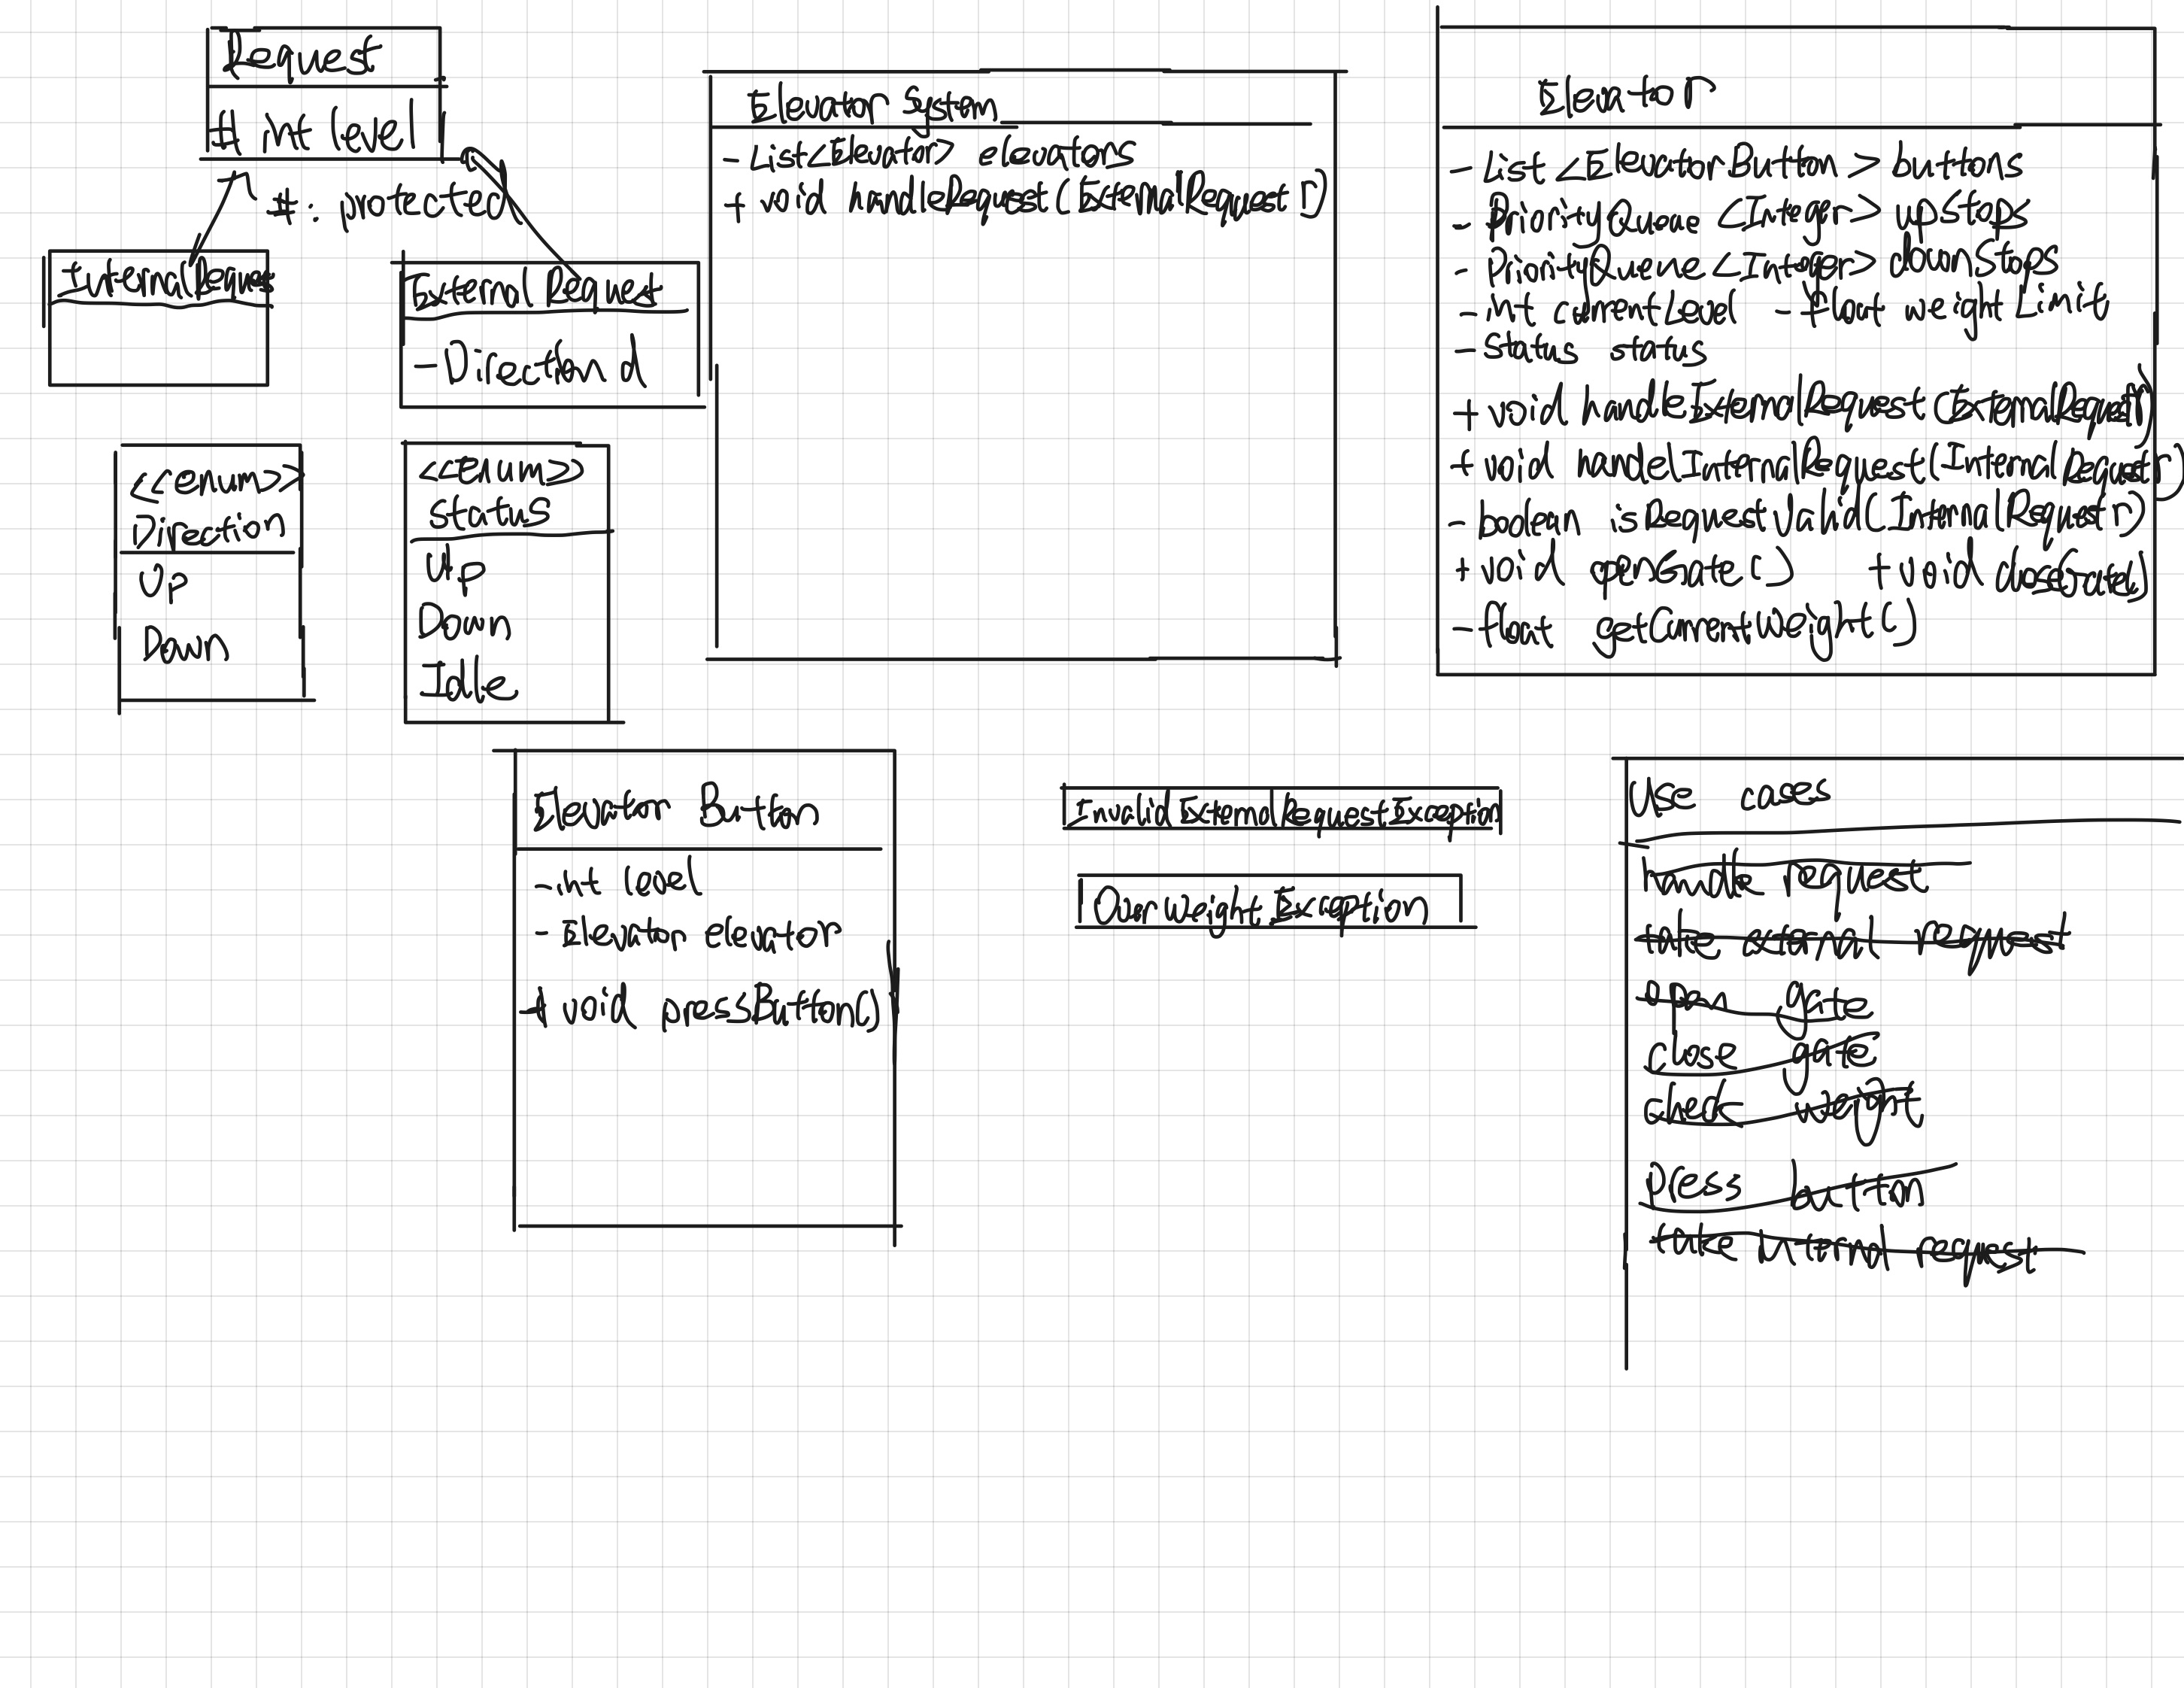 Request
# int level
#: protected
InternalReques
External Request
- Direction d
<<enum>>
Direction
Up
Down
<<enum>>
Status
Up
Down
Idle
Elevator System
- List<Elevator> elevators
+ void handleRequest (ExternalRequest r)
Elevator
- List <ElevatorButton> buttons
- PriorityQueue <Integer> upStops
- PriorityQueue <Integer> downStops
- int currentLevel - float weight Limit
- Status status
+ void handleExternalRequest (ExternalRequest r)
+ void handelInternalRequest (InternalRequest r)
- boolean isRequestValid (InternalRequest r)
+ void openGate () + void closeGate()
- float getCurrentWeight ()
Elevator Button
- int level
- Elevator elevator
+ void pressButton()
InvalidExternalRequestException
OverweightException
Use cases
handle request
take external request
open gate
close gate
check weight
press button
take internal request